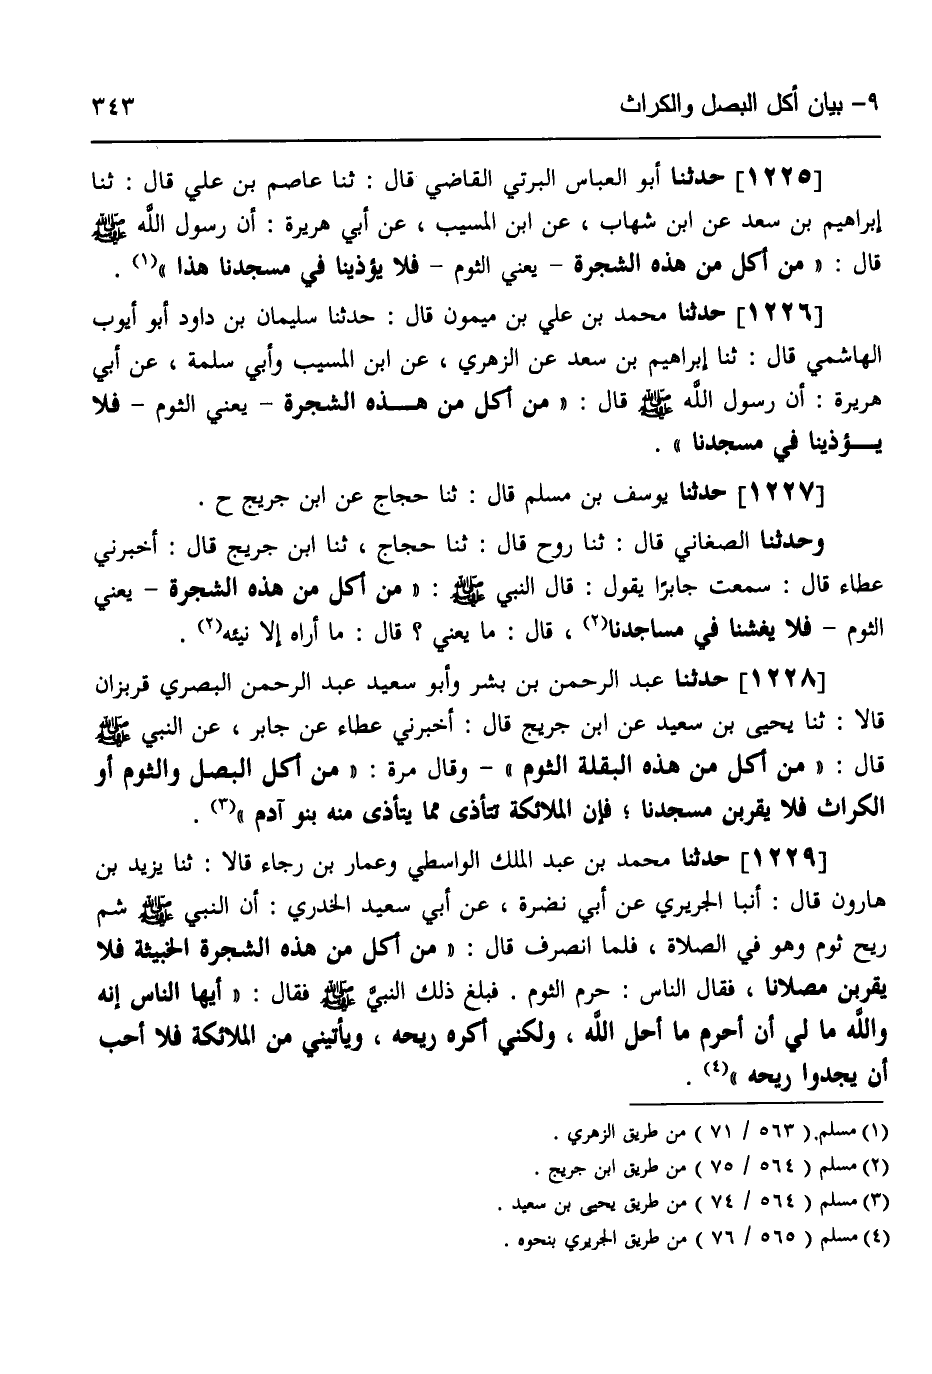 ٩- بيان أكل البصل والكراث ٣٤٣
[١٢٢٥] حدثنا أبو العباس البرتي القاضي قال : ثنا عاصم بن علي قال : ثنا
إبراهيم بن سعد عن ابن شهاب ، عن ابن المسيب ، عن أبي هريرة : أن رسول اللَّه ﷺ
قال : « من أكل من هذه الشجرة - يعني الثوم - فلا يؤذينا في مسجدنا هذا »(١) .
[١٢٢٦] حدثنا محمد بن علي بن ميمون قال : حدثنا سليمان بن داود أبو أيوب
الهاشمي قال : ثنا إبراهيم بن سعد عن الزهري ، عن ابن المسيب وأبي سلمة ، عن أبي
هريرة : أن رسول اللَّه ﷺ قال : « من أكل من هـــذه الشجرة - يعني الثوم - فلا
يـــؤذينا في مسجدنا » .
[١٢٢٧] حدثنا يوسف بن مسلم قال : ثنا حجاج عن ابن جريج ح .
وحدثنا الصغاني قال : ثنا روح قال : ثنا حجاج ، ثنا ابن جريج قال : أخبرني
عطاء قال : سمعت جابرًا يقول : قال النبي ﷺ : « من أكل من هذه الشجرة - يعني
الثوم - فلا يغشنا في مساجدنا(٢) ، قال : ما يعني ؟ قال : ما أراه إلا نيئه(٢) .
[١٢٢٨] حدثنا عبد الرحمن بن بشر وأبو سعيد عبد الرحمن البصري قربزان
قالا : ثنا يحيى بن سعيد عن ابن جريج قال : أخبرني عطاء عن جابر ، عن النبي ﷺ
قال : « من أكل من هذه البقلة الثوم » - وقال مرة : « من أكل البصل والثوم أو
الكراث فلا يقربن مسجدنا ؛ فإن الملائكة تتأذى مما يتأذى منه بنو آدم »(٣) .
[١٢٢٩] حدثنا محمد بن عبد الملك الواسطي وعمار بن رجاء قالا : ثنا يزيد بن
هارون قال : أنبا الجريري عن أبي نضرة ، عن أبي سعيد الخدري : أن النبي ﷺ شم
ريح ثوم وهو في الصلاة ، فلما انصرف قال : « من أكل من هذه الشجرة الخبيثة فلا
يقربن مصلانا ، فقال الناس : حرم الثوم . فبلغ ذلك النبيَّ ﷺ فقال : « أيها الناس إنه
واللَّه ما لي أن أحرم ما أحل اللَّه ، ولكني أكره ريحه ، ويأتيني من الملائكة فلا أحب
أن يجدوا ريحه »(٤) .
(١) مسلم ( ٥٦٣ / ٧١ ) من طريق الزهري .
(٢) مسلم ( ٥٦٤ / ٧٥ ) من طريق ابن جريج .
(٣) مسلم ( ٥٦٤ / ٧٤ ) من طريق يحيى بن سعيد .
(٤) مسلم ( ٥٦٥ / ٧٦ ) من طريق الجريري بنحوه .